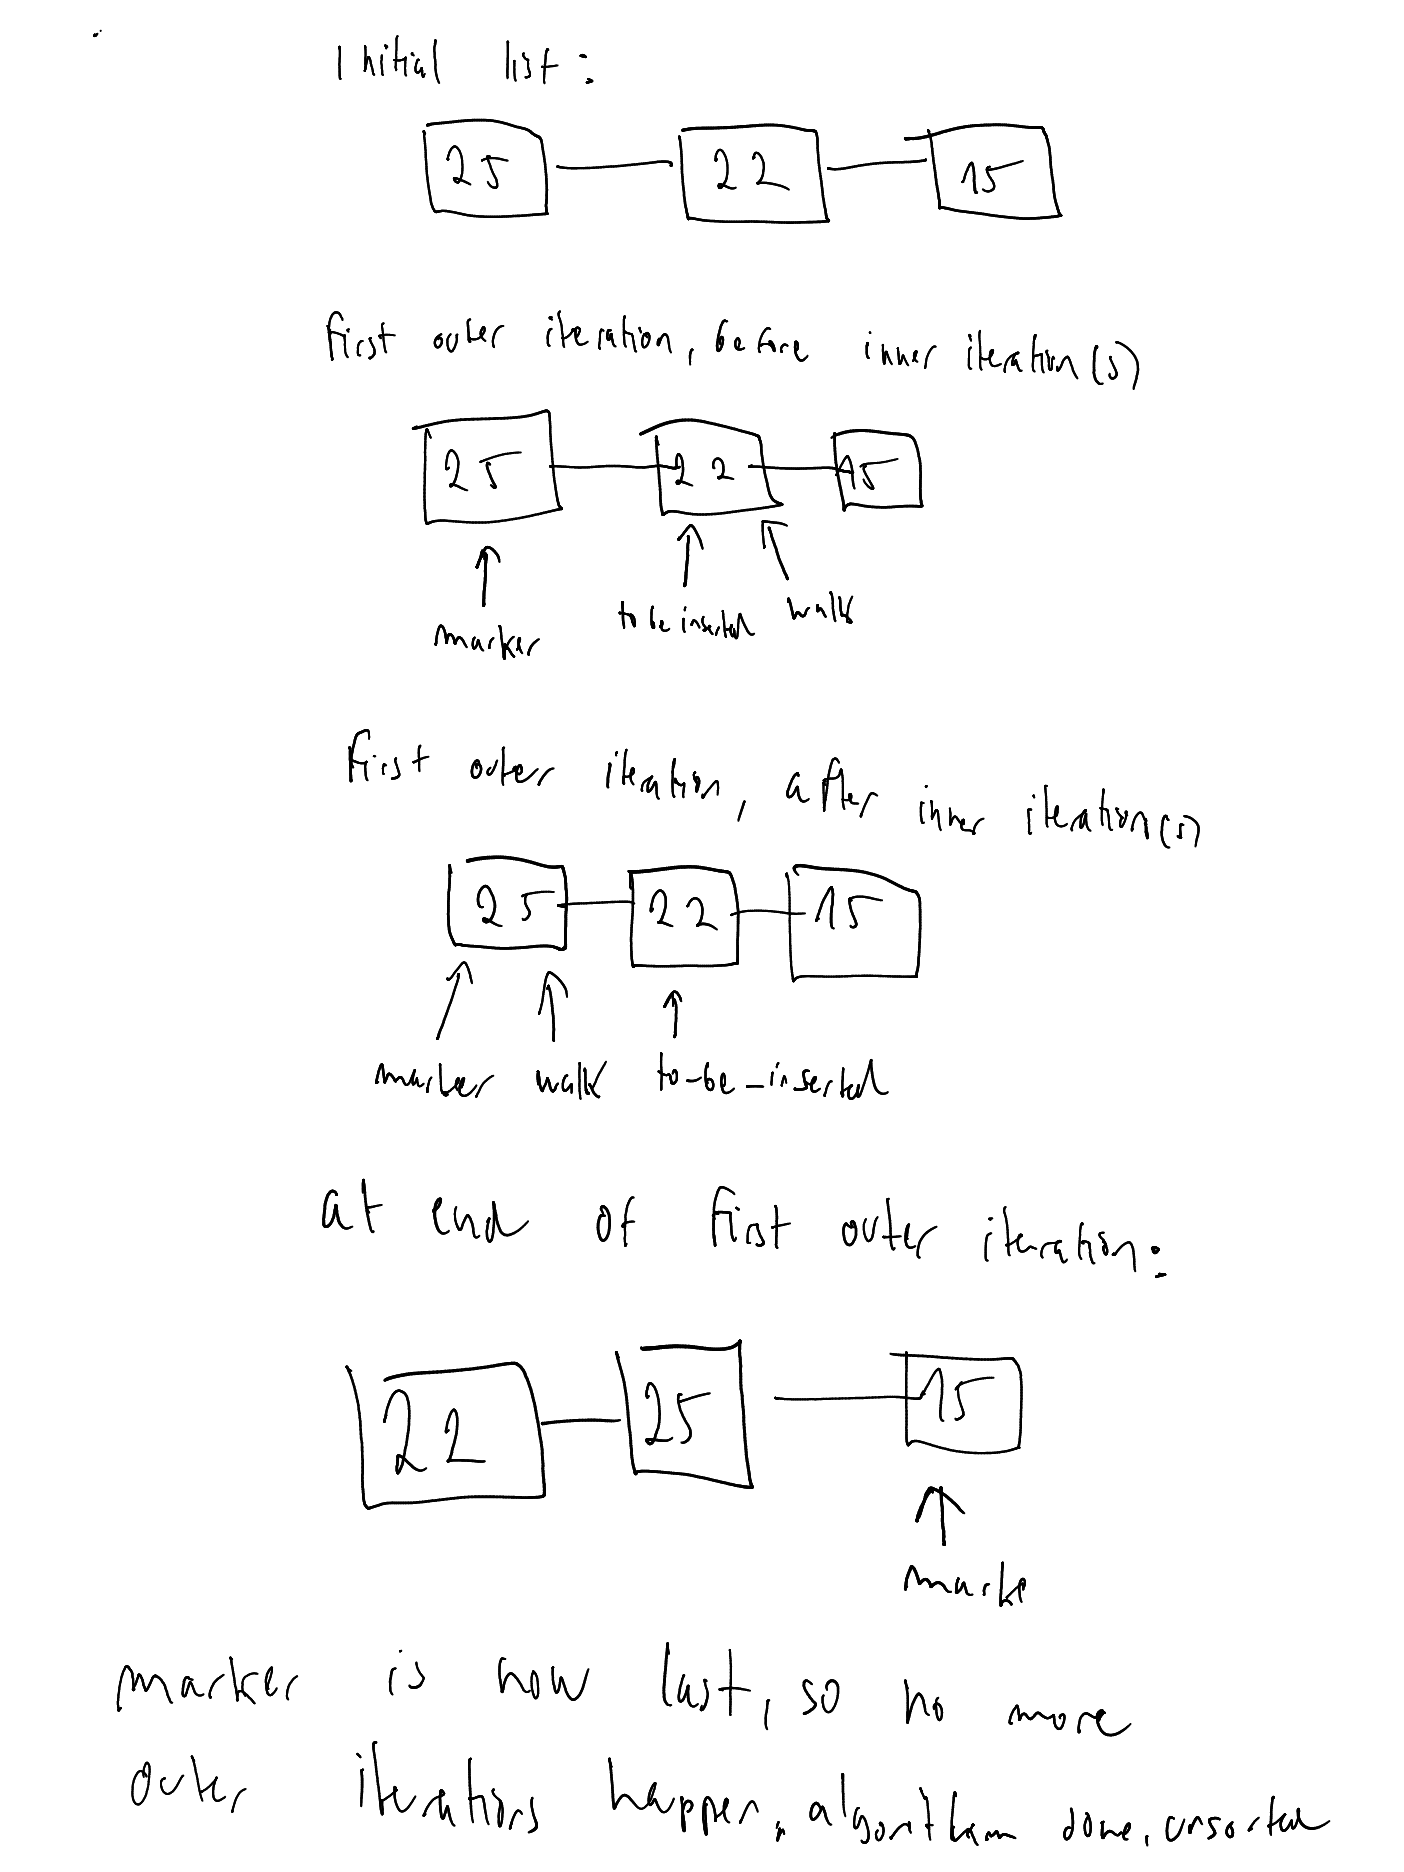 Initial list:
25 22 15
first outer iteration, before inner iteration(s)
25 22 15
marker to be inserted walk
first outer iteration, after inner iteration(s)
25 22 15
marker walk to-be-inserted
at end of first outer iteration:
22 25 15
marke
marker is now last, so no more
outer iterations happen, algorithm done, unsorted